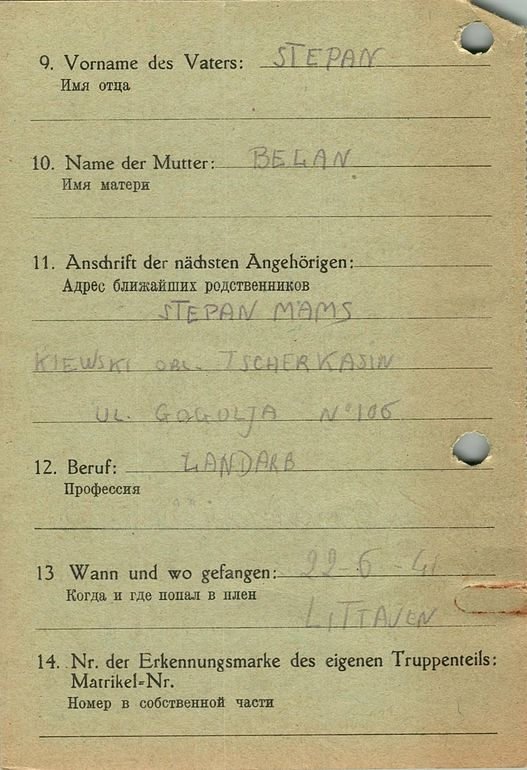 9. Vorname des Vaters: STEPAN
Имя отца
10. Name der Mutter: BELAN
Имя матери
11. Anschrift der nächsten Angehörigen:
Адрес ближайших родственников
STEPAN MAMS
KIEWSKI OBL. TSCHERKASIN
UL. GOGOLJA N° 106
12. Beruf: LANDARB
Профессия
13 Wann und wo gefangen: 22-6-41
Когда и где попал в плен
LITTAUEN
14. Nr. der Erkennungsmarke des eigenen Truppenteils:
Matrikel-Nr.
Номер в собственной части